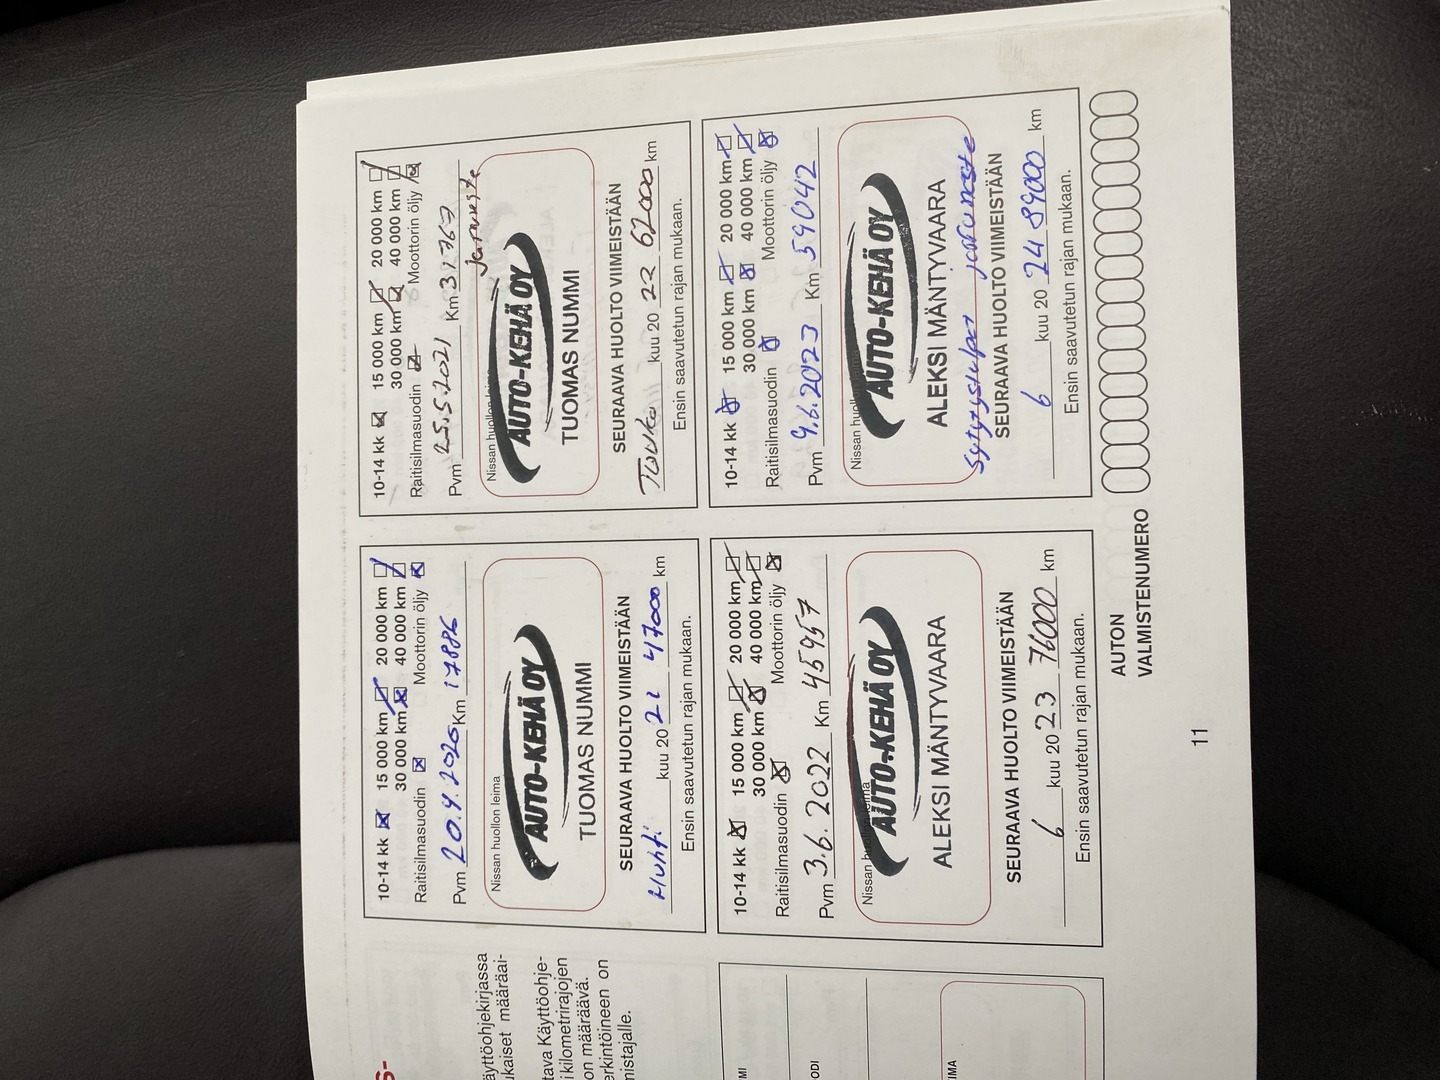 S-
äyttöohjekirjassa
ukaiset määräai-
tava Käyttöohje-
i kilometrirajojen
on määräävä.
erkintöineen on
nistajalle.
MI
ODI
IMA
10-14 kk 15 000 km 20 000 km
30 000 km 40 000 km
Raitisilmasuodin Moottorin öljy
Pvm 20.4.2020 Km 17886
Nissan huollon leima
AUTO-KEHÄ OY
TUOMAS NUMMI
SEURAAVA HUOLTO VIIMEISTÄÄN
Huhti kuu 20 21 47000 km
Ensin saavutetun rajan mukaan.
10-14 kk 15 000 km 20 000 km
30 000 km 40 000 km
Raitisilmasuodin Moottorin öljy
Pvm 25.5.2021 Km 31767
Jarruneste
Nissan huollon leima
AUTO-KEHÄ OY
TUOMAS NUMMI
SEURAAVA HUOLTO VIIMEISTÄÄN
Touko kuu 20 22 62000 km
Ensin saavutetun rajan mukaan.
10-14 kk 15 000 km 20 000 km
30 000 km 40 000 km
Raitisilmasuodin Moottorin öljy
Pvm 3.6.2022 Km 45957
Nissan huollon leima
AUTO-KEHÄ OY
ALEKSI MÄNTYVAARA
SEURAAVA HUOLTO VIIMEISTÄÄN
6 kuu 20 23 76000 km
Ensin saavutetun rajan mukaan.
10-14 kk 15 000 km 20 000 km
30 000 km 40 000 km
Raitisilmasuodin Moottorin öljy
Pvm 9.6.2023 Km 59042
Nissan huollon
AUTO-KEHÄ OY
ALEKSI MÄNTYVAARA
Sytytystulpat jarruneste
SEURAAVA HUOLTO VIIMEISTÄÄN
6 kuu 20 24 89000 km
Ensin saavutetun rajan mukaan.
AUTON
VALMISTENUMERO
11